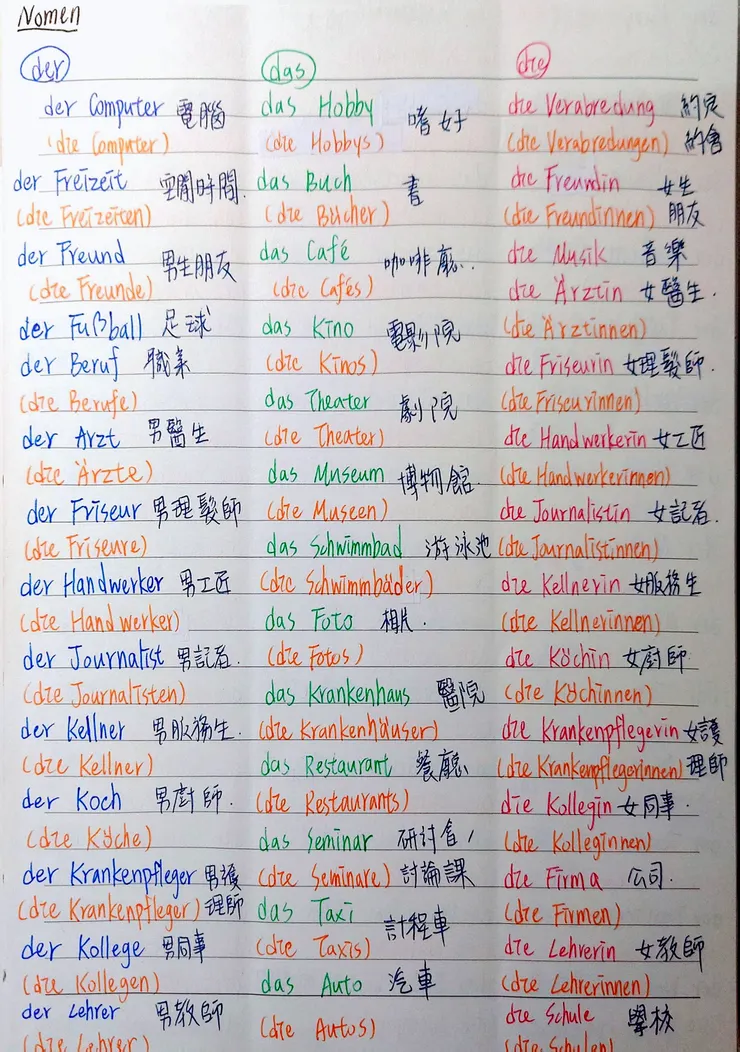 Nomen
der
der Computer 電腦
(die Computer)
der Freizeit 空閒時間.
(die Freizeiten)
der Freund 男生朋友
(die Freunde)
der Fußball 足球
der Beruf 職業
(die Berufe)
der Arzt 男醫生
(die Ärzte)
der Friseur 男理髮師
(die Friseure)
der Handwerker 男工匠
(die Handwerker)
der Journalist 男記者.
(die Journalisten)
der Kellner 男服務生.
(die Kellner)
der Koch 男廚師.
(die Köche)
der Krankenpfleger 男護
(die Krankenpfleger) 理師
der Kollege 男同事
(die Kollegen)
der Lehrer 男教師
(die Lehrer)
das
das Hobby 嗜好
(die Hobbys)
das Buch 書
(die Bücher)
das Café 咖啡廳.
(die Cafés)
das Kino 電影院
(die Kinos)
das Theater 劇院
(die Theater)
das Museum 博物館.
(die Museen)
das Schwimmbad 游泳池
(die Schwimmbäder)
das Foto 相片.
(die Fotos)
das Krankenhaus 醫院
(die Krankenhäuser)
das Restaurant 餐廳
(die Restaurants)
das Seminar 研討會/
(die Seminare) 討論課
das Taxi 計程車
(die Taxis)
das Auto 汽車
(die Autos)
die
die Verabredung 約定
(die Verabredungen) 約會
die Freundin 女生
(die Freundinnen) 朋友
die Musik 音樂
die Ärztin 女醫生.
(die Ärztinnen)
die Friseurin 女理髮師.
(die Friseurinnen)
die Handwerkerin 女工匠
(die Handwerkerinnen)
die Journalistin 女記者.
(die Journalistinnen)
die Kellnerin 女服務生
(die Kellnerinnen)
die Köchin 女廚師
(die Köchinnen)
die Krankenpflegerin 女護
(die Krankenpflegerinnen) 理師
die Kollegin 女同事.
(die Kolleginnen)
die Firma 公司.
(die Firmen)
die Lehrerin 女教師
(die Lehrerinnen)
die Schule 學校
(die Schulen)